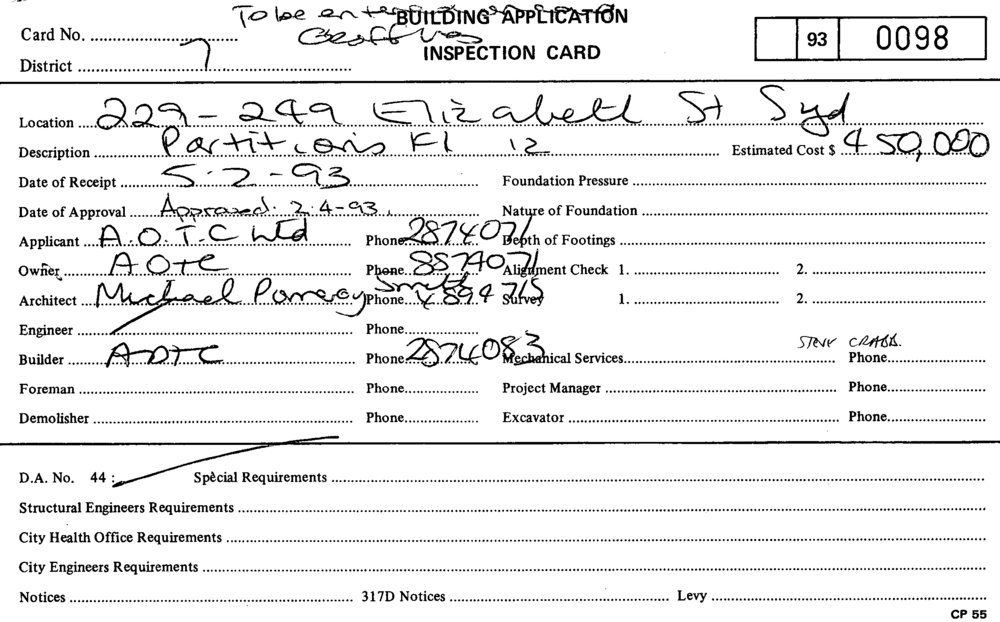 To be
BUILDING APPLICATION
Card No. INSPECTION CARD 93 0098
District 7
Location 229-249 Elizabeth St Syd
Description Partitions Fl 12 Estimated Cost $ 450,000
Date of Receipt 5.2-93 Foundation Pressure
Date of Approval Approved. 2.4-93. Nature of Foundation
Applicant A.O.T.C Ltd Phone 2874071 Depth of Footings
Owner AOTC Phone 8874071 Alignment Check 1. 2.
Architect Michael Pomeroy Smith Phone 4894715 Survey 1. 2.
Engineer Phone
Builder AOTC Phone 2874083 Mechanical Services STEVE CRABB. Phone
Foreman Phone Project Manager Phone
Demolisher Phone Excavator Phone
D.A. No. 44: Spècial Requirements
Structural Engineers Requirements
City Health Office Requirements
City Engineers Requirements
Notices 317D Notices Levy
CP 55